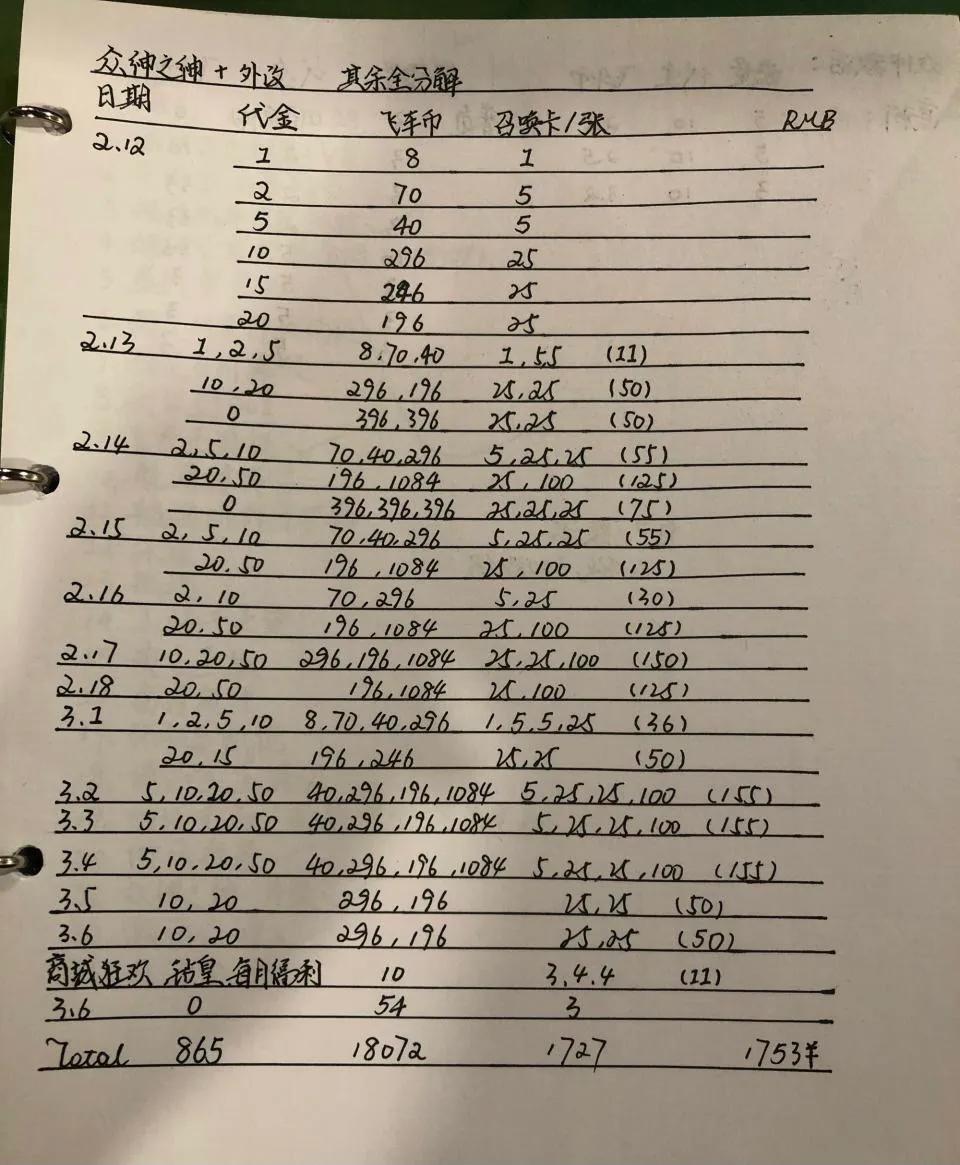 众绅之绅 + 外改 其余全分解
日期 代金 飞车币 召唤卡/张 RMB
2.12 1 8 1
2 70 5
5 40 5
10 296 25
15 246 25
20 196 25
2.13 1,2,5 8,70,40 1,5,5 (11)
10,20 296,196 25,25 (50)
0 396,396 25,25 (50)
2.14 2,5,10 70,40,296 5,25,25 (55)
20,50 196,1084 25,100 (125)
0 396,396,396 25,25,25 (75)
2.15 2,5,10 70,40,296 5,25,25 (55)
20.50 196,1084 25,100 (125)
2.16 2,10 70,296 5,25 (30)
20.50 196,1084 25,100 (125)
2.17 10,20,50 296,196,1084 25,25,100 (150)
2.18 20,50 196,1084 25.100 (125)
3.1 1,2,5,10 8,70,40,296 1,5,5,25 (36)
20,15 196,246 25,25 (50)
3.2 5,10,20,50 40,296,196,1084 5,25,25,100 (155)
3.3 5,10,20,50 40,296,196,1084 5,25,25,100 (155)
3.4 5,10,20,50 40,296,196,1084 5,25,25,100 (155)
3.5 10,20 296,196 25,25 (50)
3.6 10,20 296,196 25,25 (50)
商城狂欢,钻皇,每月福利 10 3,4,4 (11)
3.6 0 54 3
Total 865 18072 1727 1753¥